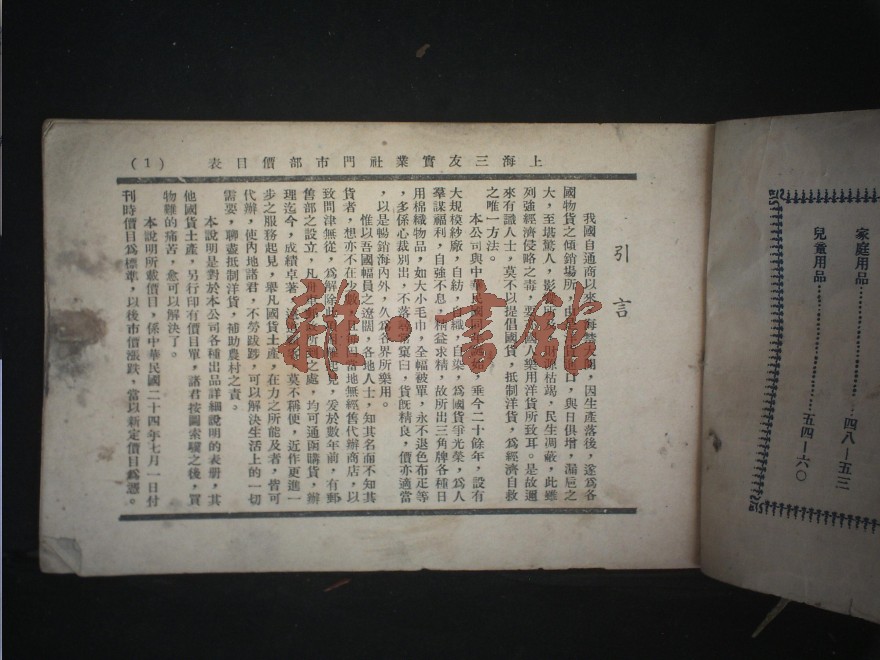 家庭用品 四八－五三
兒童用品 五四－六〇
上海三友實業社門市部價目表
(1)
引言
我國自通商以來，海禁大開，因生產落後，遂爲各
國物貨之傾銷場所，由 口，與日俱增，漏巵之
大，至堪驚人，影 源枯竭，民生凋蔽，此雖
列強經濟侵略之毒，要 國人樂用洋貨所致耳。是故邇
來有識人士，莫不以提倡國貨，抵制洋貨，爲經濟自救
之唯一方法。
本公司與中華民國同 垂今二十餘年，設有
大規模紗廠，自紡，自織，自染，爲國貨爭光榮，爲人
羣謀福利，自強不息，精益求精，故所出三角牌各種日
用棉織物品，如大小毛巾，全幅被單，永不退色布疋等
，多係心裁別出，不落 窠臼，貨既精良，價亦適當
，以是暢銷海內外，久爲各界所樂用。
惟以吾國幅員之遼闊，各地人士，知其名而不知其
貨者，想亦不在少數， 因當地無經售代辦商店，以
致問津無從，爲解除此 起見，爰於數年前，有郵
售部之設立，凡 所 之處，均可通函購貨，辦
理迄今，成績卓著， 莫不稱便，近作更進一
步之服務起見，舉凡國貨土產，在力之所能及者，皆可
代辦，使內地諸君，不勞跋踄，可以解決生活上的一切
需要，聊盡抵制洋貨，補助農村之責。
本說明是對於本公司各種出品詳細說明的表册，其
他國貨土產，另行印有價目單，諸君按圖索驥之後，買
物難的痛苦，愈可以解決了。
本說明所載價目，係中華民國二十四年七月一日付
刊時價目爲標準，以後市價漲跌，當以新定價目爲憑。
雜·書館